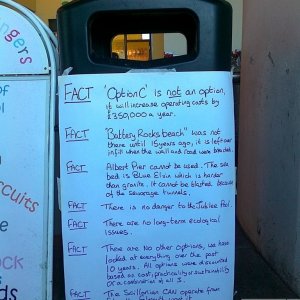 FACT 'Option C' is not an option,
it will increase operating costs by
£350,000 a year.
FACT "Battery Rocks beach" was not
there until 15 years ago, it is left over
infill when the wall and road were
FACT Albert Pier cannot be used. The sea
bed is Blue Elvin which is harder
than granite. It cannot be blasted because
of the sewerage tunnels.
FACT There is no danger to the Jubilee Pool.
FACT There are no long-term ecological
issues.
FACT There are no other options, we have
looked at everything over the past
10 years. All options were discounted
based on cost, practicality or sustainability
or a combination of all 3.
FACT The Scillonian CAN operate from
ngers
of
ol
ircuits
e
ock
ds